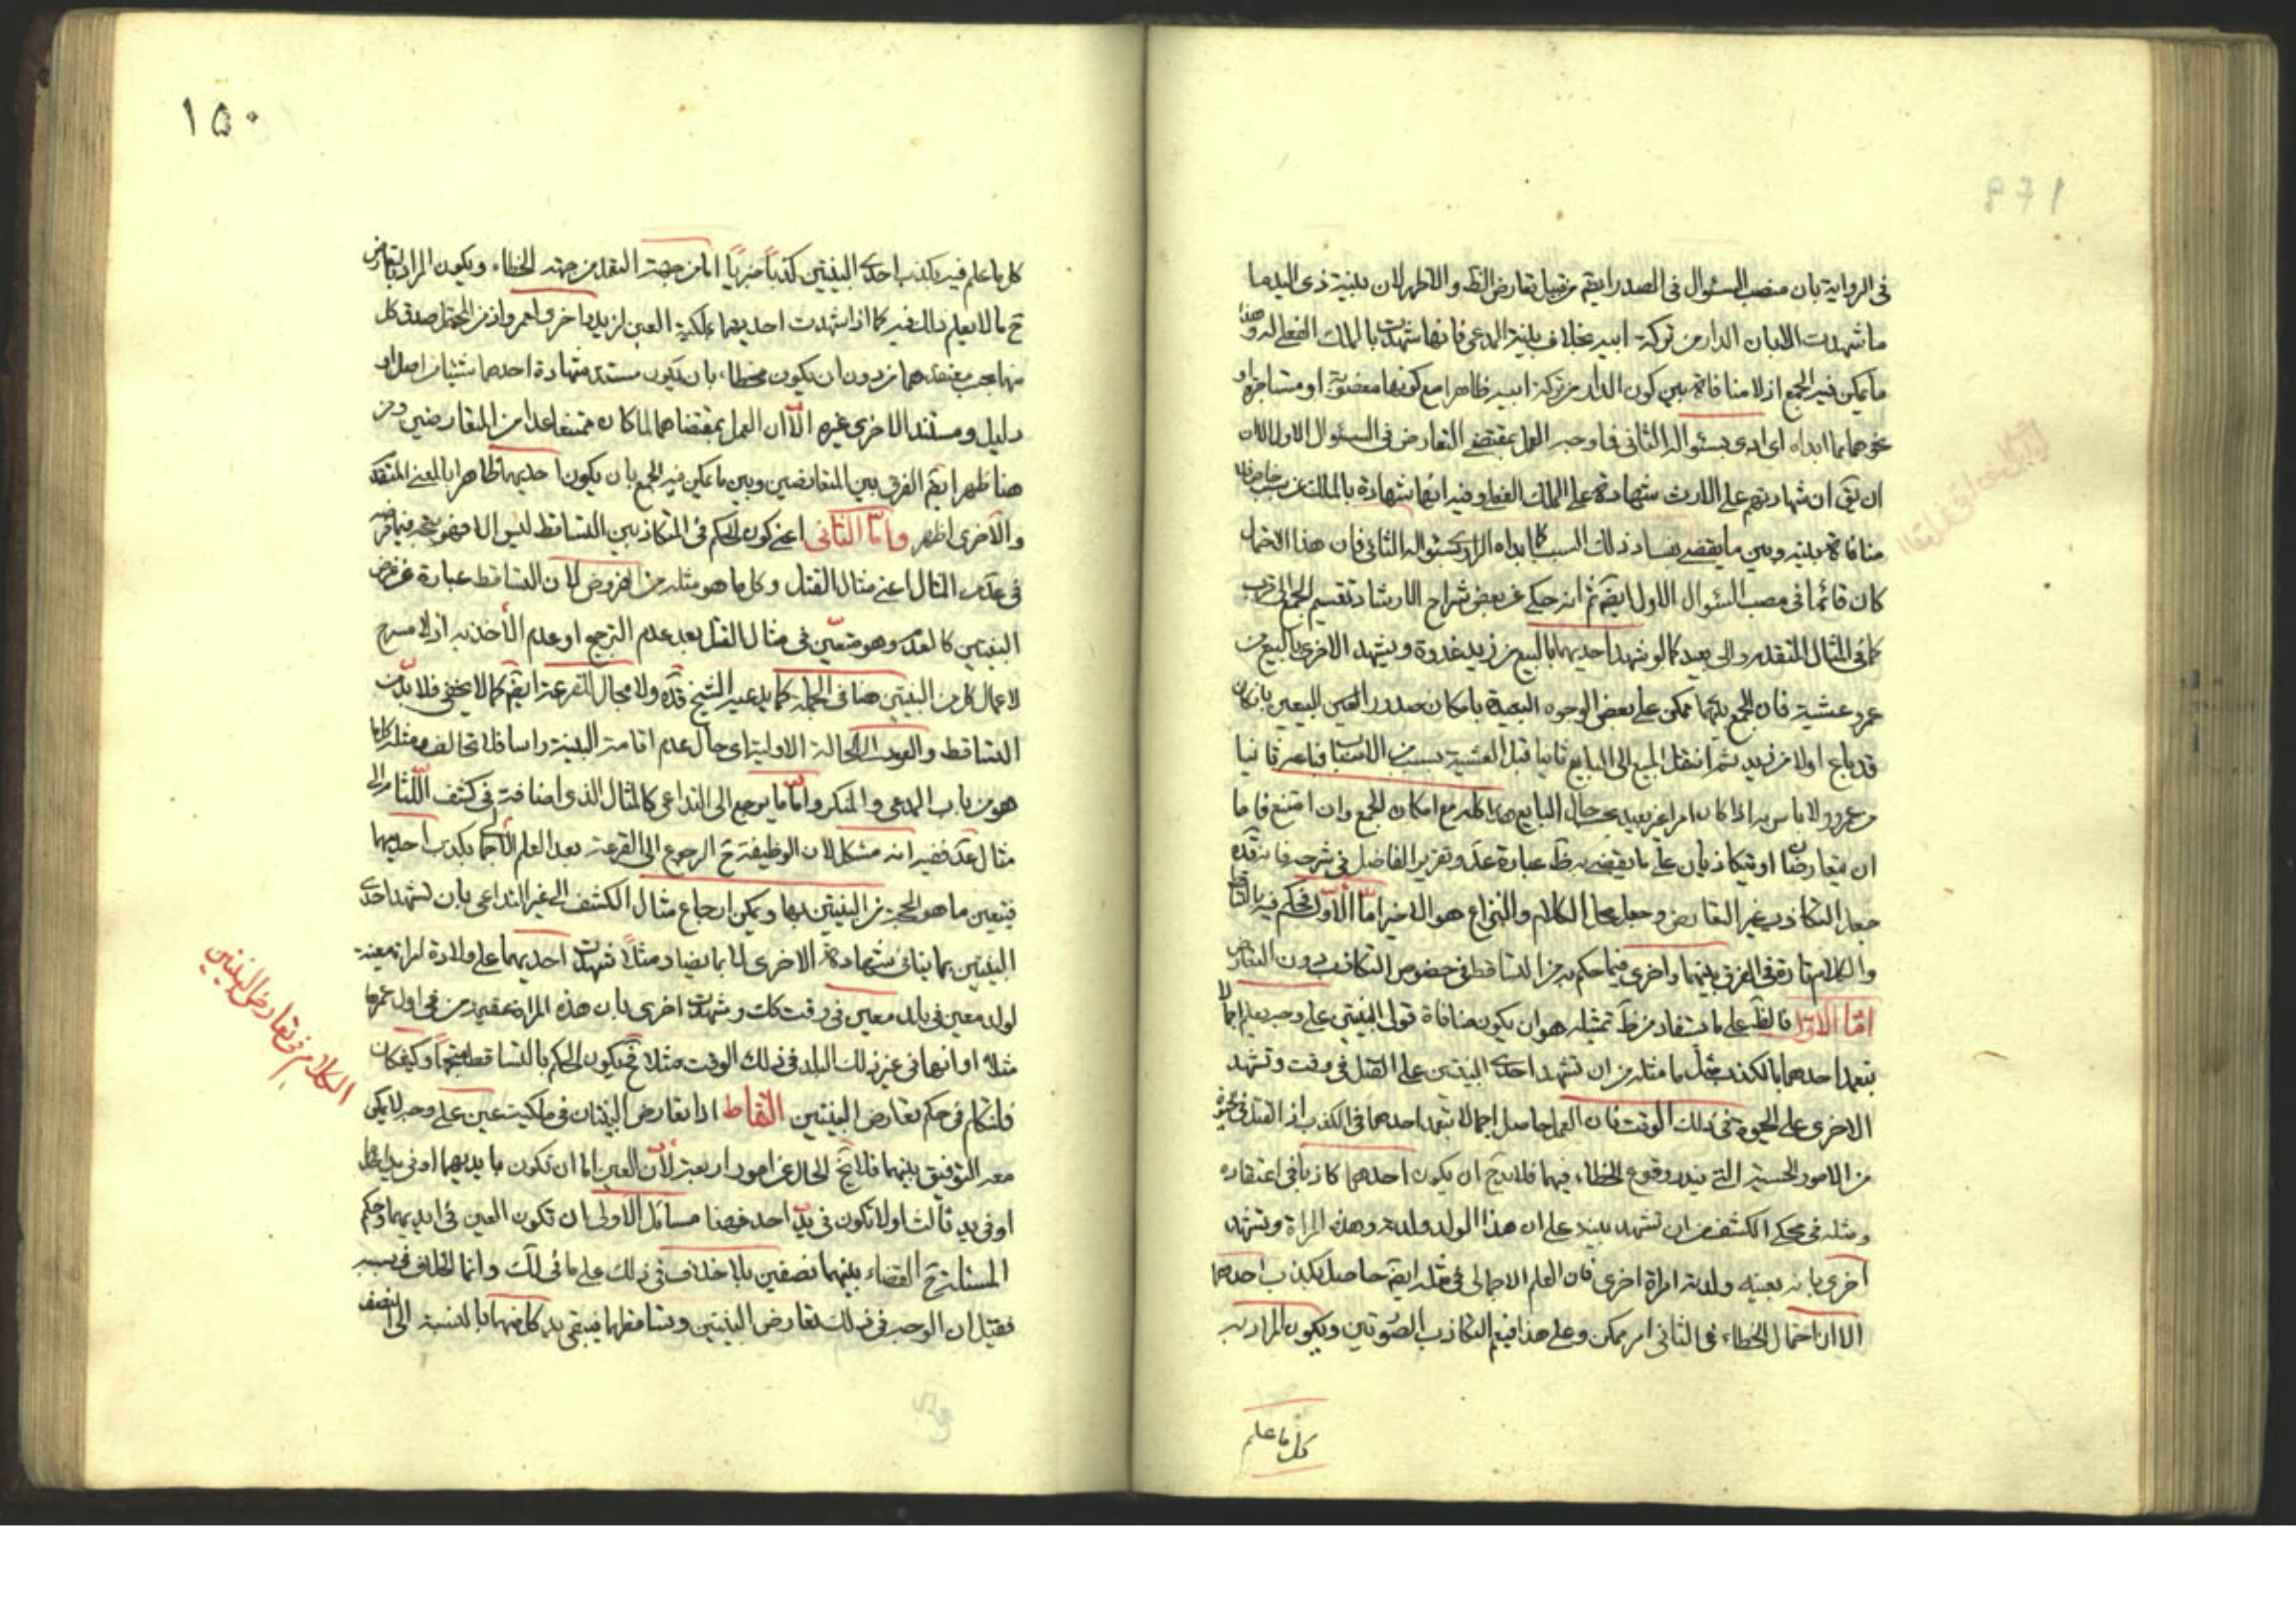 فى الرواية بان منصب السئوال فى الصدر ايضم من قبيل تعارض الظ والاظهر لان بينة ذى اليد ما
ما شهدت الا بان الدار من تركة ابيه بخلاف بينة المدعى فانها شهدت بالملك الفعلى له وهذا
ما يمكن فيه الجمع اذ لا منافاة بين كون الدار من تركة ابيه ظاهرا مع كونها مغصوبة او مستاجرة او
نحوهما مما ابداه اى ابدى بسئواله الثانى فما وجه العمل بمقتضى التعارض فى السئوال الاول الا ان
ان يق ان شهادتهم على الارث شهادة على الملك الفعلى وفيه انها شهادة بالملك عن سبب خاص فلا
منافاة بينه وبين ما يقضى بفساد ذلك السبب كما ابداه الراوى بسئواله الثانى فان هذا الاحتمال
كان قائما فى مصب السئوال الاول ايضم ثم انه حكى عن بعض شراح الارشاد تقسيم الجمع الى قريب
كما فى المثال المتقدم والى بعيد كما لو شهد احديهما بالبيع من زيد غدوة ويشهد الاخرى بالبيع من
عمرو عشية فان الجمع بينهما ممكن على بعض الوجوه البعيدة بامكان صدور البيعين بان كان
قد باع اولا من زيد ثم انتقل المبيع الى البايع ثانيا قبل العشية بسبب من الاسباب فباعه ثانيا
من عمرو ولا باس به اذا كان امرا غير بعيد بحسب حال البايع هذا كله مع امكان الجمع وان امتنع فاما
ان يتعارضا او يتكاذبان على ما يقضى به ظ عبارة عد وتقرير الفاضل فى شرحه فانه قده
جعل التكاذب غير التعارض وجعل محل الكلام والنزاع هو الاخير اما الاول فحكم فيه بالتساقط
والكلام تارة فى الفرق بينهما واخرى فيما حكم به من التساقط فى خصوص التكاذب دون التعارض
اما الاول فالظ على ما يستفاد من ظ تمثيله هو ان يكون منافاة قول البينتين على وجه يعلم اجمالا
بتعمد احدهما بالكذب مثل ما مثله من ان تشهد احدى البينتين على القتل فى وقت وتشهد
الاخرى على الحيوة فى ذلك الوقت فان العلم حاصل اجمالا بتعمد احدهما فى الكذب اذ القتل والحيوة
من الامور الحسية التى يندر وقوع الخطاء فيهما فلا بد ح ان يكون احدهما كاذبا فى اعتقاده
ومثله فى محكى الكشف من ان تشهد بينة على ان هذا الولد ولدته هذه المراة وتشهد
اخرى بانه بعينه ولدته امراة اخرى فان العلم الاجمالى فى مثله ايضم حاصل بكذب احدهما
الا ان احتمال الخطاء فى الثانى امر ممكن وعلى هذا فيعم التكاذب الصورتين ويكون المراد به
كل ما علم
١٥٠
كل ما علم فيه بكذب احدى البينتين كذبا خبريا اما من جهة التعمد او من جهة الخطاء ويكون المراد بالتعارض
ح ما لا يعلم ذلك فيه كما اذا شهدت احديهما بملكية العين لزيد واخرى لعمرو اذ من المحتمل صدق كل
منهما بحسب معتقدهما من دون ان يكون مخطاء بان يكون مستند شهادة احدهما شيئا من اصل او
دليل ومستند الاخرى غيره الا ان العمل بمقتضاهما لما كان ممتنعا عدا من المتعارضين ومن
هنا ظهر ايضم الفرق بين المتعارضين وبين ما يمكن فيه الجمع بان يكون احديهما ظاهرا بالمعنى المتقدم
والاخرى اظهر واما الثانى اعنى كون الحكم فى المتكاذبين التساقط ليس الا فهو متجه فيما فرضه
فى عد من المثال اعنى مثال القتل وكل ما هو مثله من الفروض لان التساقط عبارة عن فرض
البينتين كالعدم وهو متعين فى مثال القتل بعد عدم الترجيح او عدم الأخذ به اذ لا مسرح
لاعمال كل من البينتين هنا فى الجملة كما يدعيه الشيخ قده ولا مجال للقرعة ايضم كما لا يخفى فلا بد من
التساقط والعود الى الحالة الاولية اى حال عدم اقامة البينة راسا فلا تخالف ومثله كلما
هو من باب المدعى والمنكر واما ما يرجع الى التداعى كالمثال الذى اضافه فى كشف اللثام الى
مثال عد ففيه انه مشكل لان الوظيفة ح الرجوع الى القرعة بعد العلم الاجمالى بكذب احديهما
فيتعين ما هو الحجة من البينتين بها ويمكن ارجاع مثال الكشف الى غير التداعى بان تشهد احدى
البينتين بما ينافى شهادة الاخرى لا بما يضاد مثلا شهدت احديهما على ولادة امراة معينة
لولد معين فى بلد معين فى وقت كذلك وشهدت اخرى بان هذه المراة عقيم من فى اول عمرها
مثلا او انها فى غير ذلك البلد فى ذلك الوقت مثلا فح يكون الحكم بالتساقط متجها وكيف كان
فلنتكلم فى حكم تعارض البينتين التقاط اذا تعارض البينتان فى ملكية عين على وجه لا يمكن
معه التوفيق بينهما فلا يخ الحال عن امور اربعة لأن العين اما ان تكون بايديهما او فى يد احدهما
او فى يد ثالث او لا تكون فى يد احد فهنا مسائل الاولى ان تكون العين فى ايديهما وحكم
المسئلة ح القضاء بينهما نصفين بلا خلاف فى ذلك على ما فى لك وانما الخلاف فى سببه
فقيل ان الوجه فى ذلك تعارض البينتين وتساقطهما فيبقى يد كل منهما بالنسبة الى النصف
الكلام فى تعارض البينتين